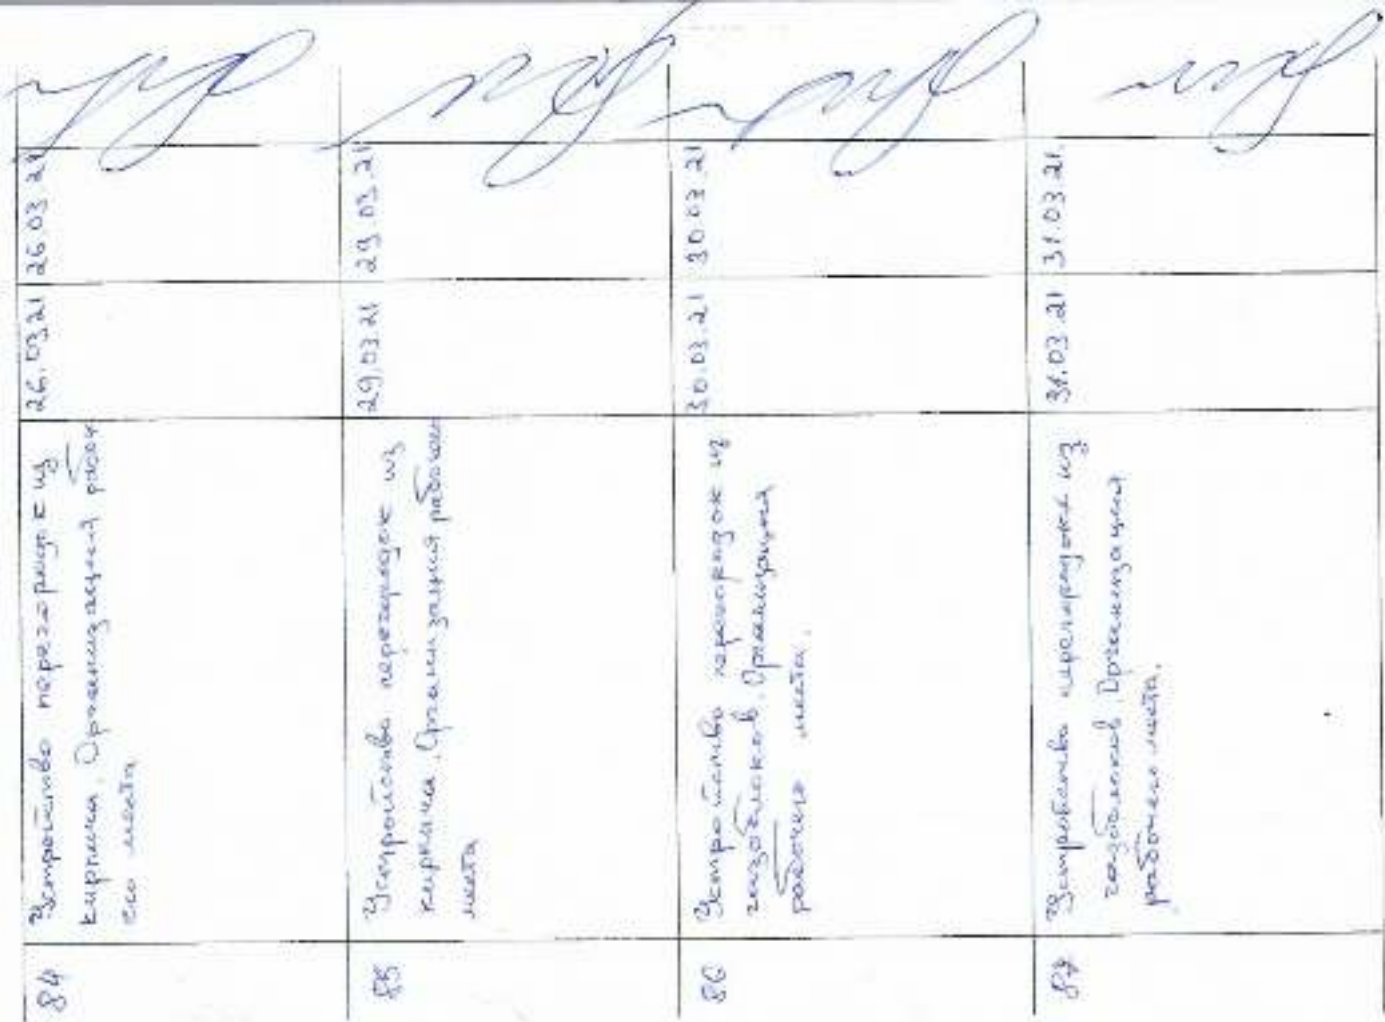 84
Устройство перегородок из
кирпича. Организация рабоч
его места
26.03.21
26.03.21
85
Устройство перегородок из
кирпича. Организация рабочего
места
29.03.21
29.03.21
86
Устройство перегородок из
газоблоков. Организация
рабочего места.
30.03.21
30.03.21
87
Устройство перегородок из
газоблоков. Организация
рабочего места.
31.03.21
31.03.21.